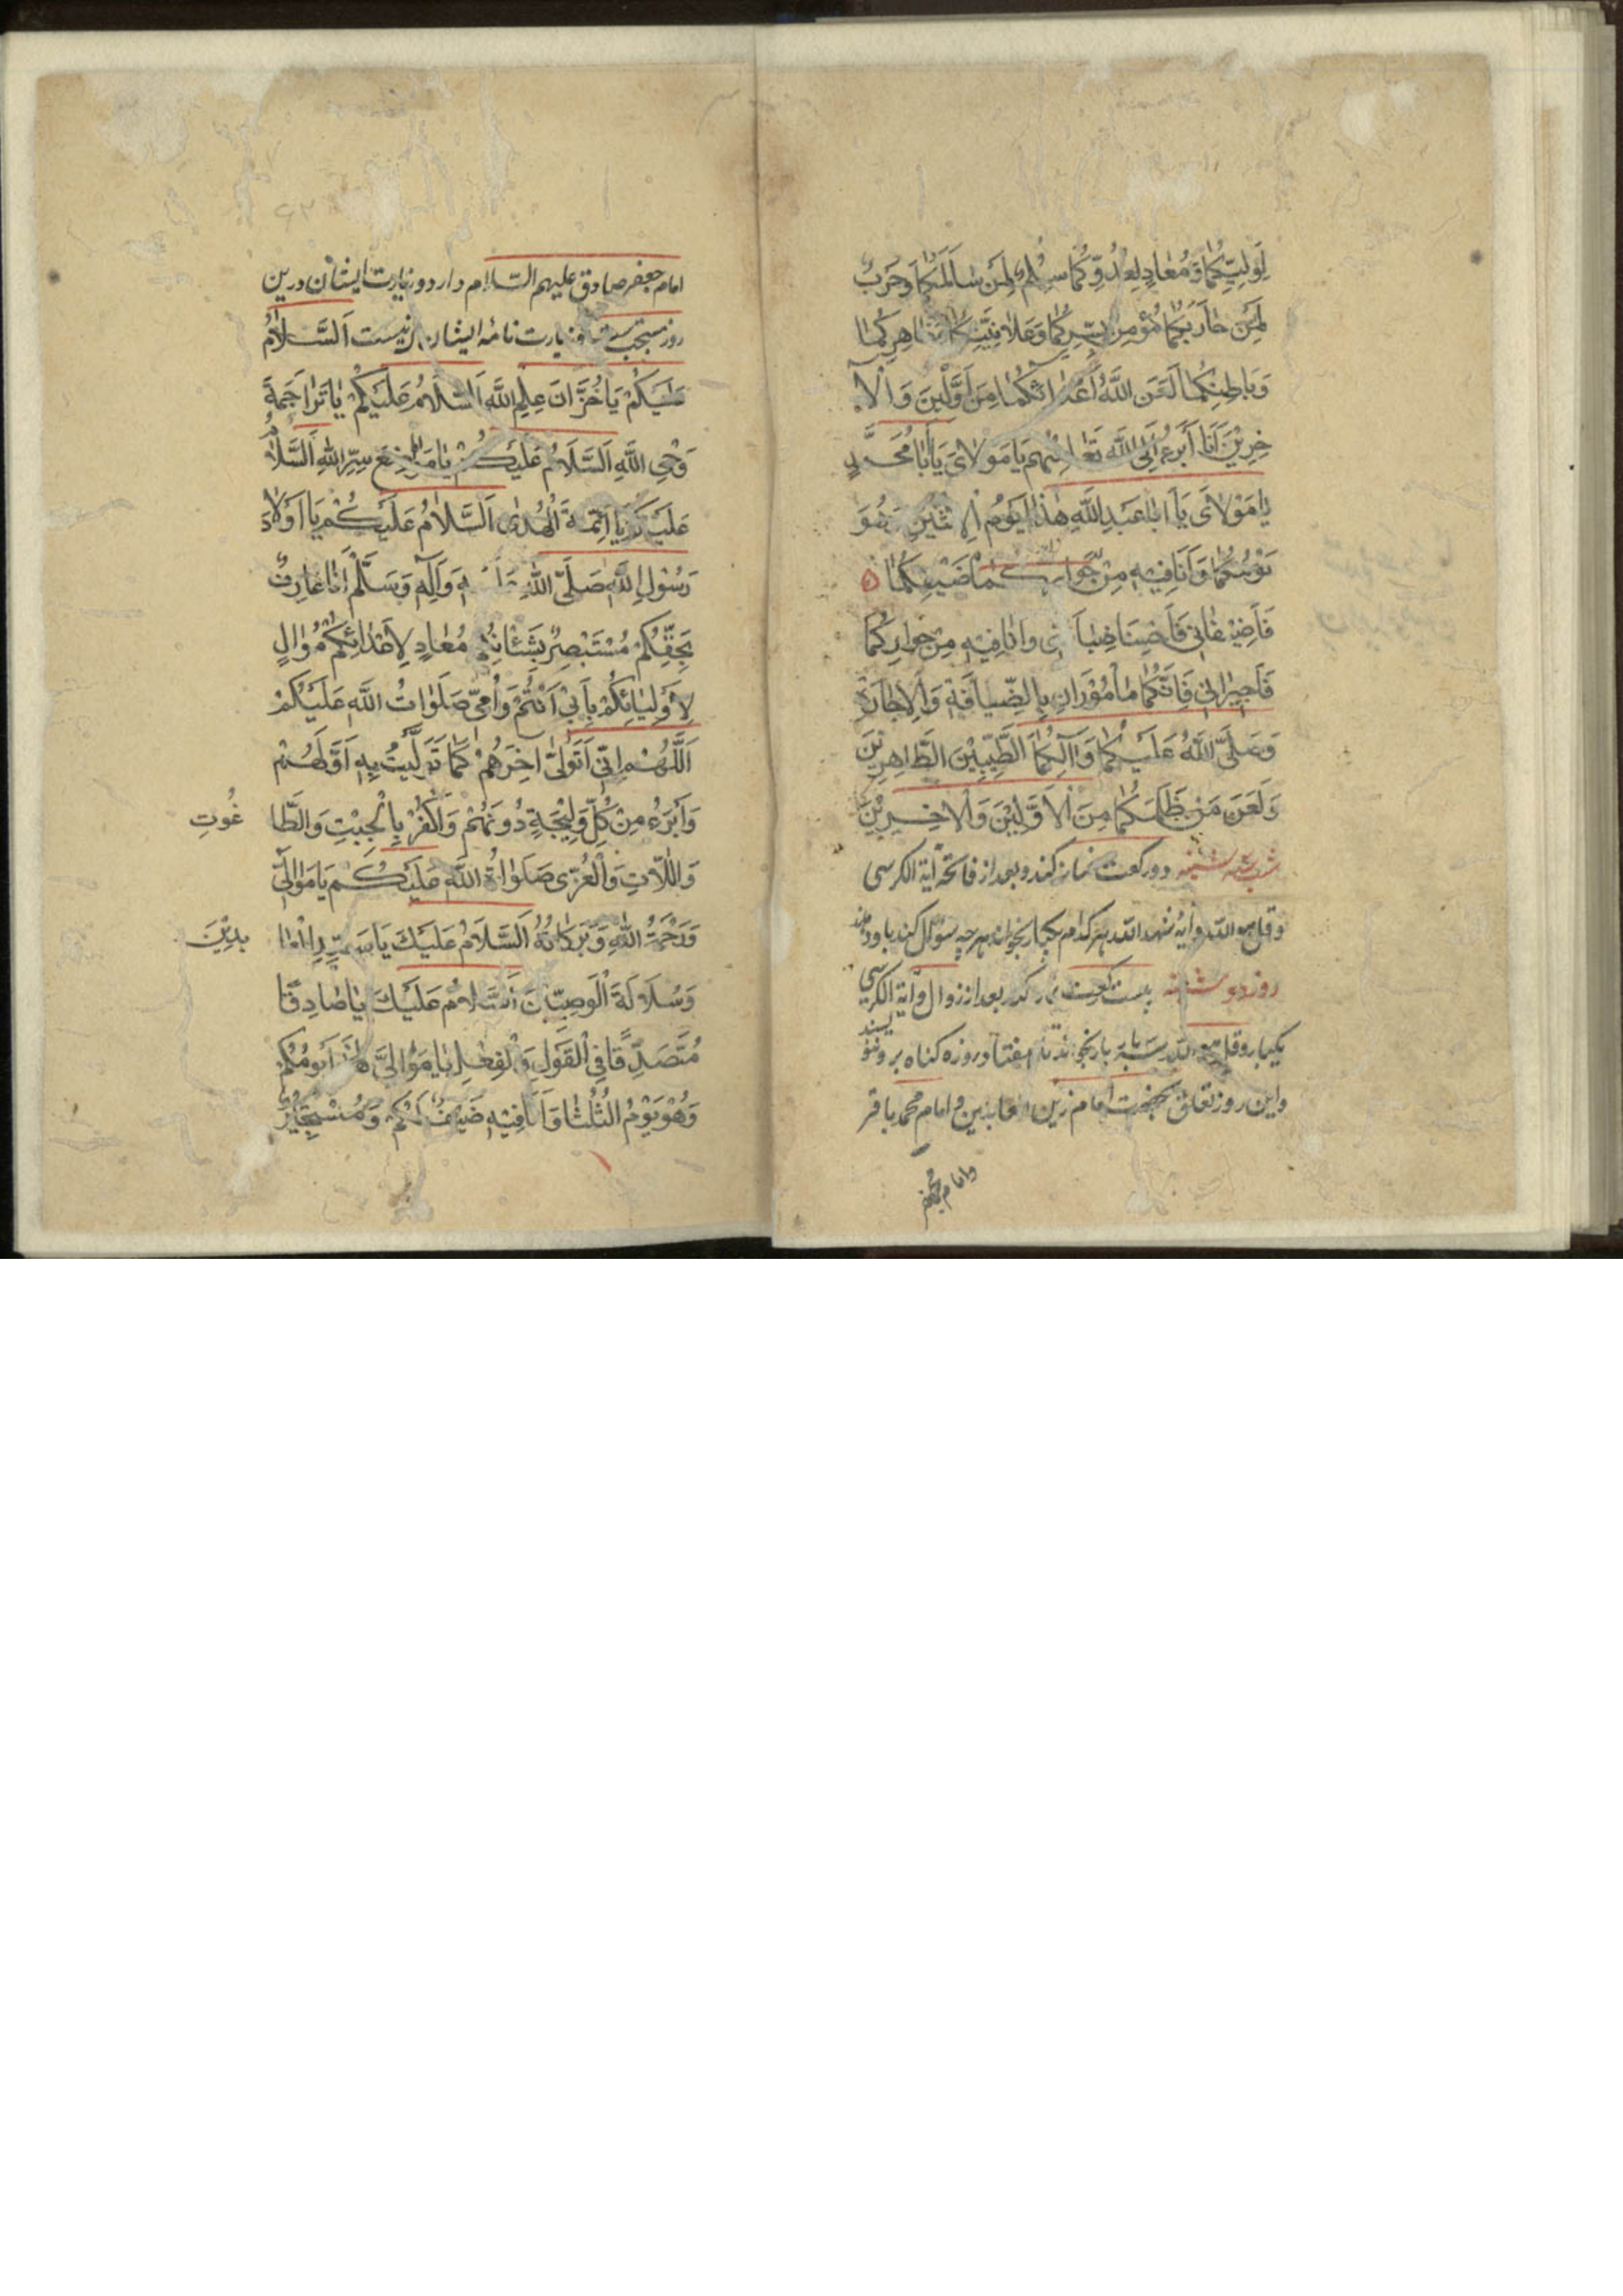 لِوَلِيِّكُمَا وَمُعَادٍ لِعَدُوِّكُمَا سِلْمٌ لِمَنْ سَالَمَكُمَا وَحَرْبٌ
لِمَنْ حَارَبَكُمَا مُؤْمِنٌ بِسِرِّكُمَا وَعَلَانِيَتِكُمَا وَظَاهِرِكُمَا
وَبَاطِنِكُمَا لَعَنَ اللَّهُ أَعْدَائَكُمَا مِنَ لَوَّلِينَ وَالْآ
خِرِيْنَ اَنَا أَبْرَءُ اِلَى اللَّهِ تَعَالَى مِنْهُمْ يَا مَوْلَايَ يَا أَبَا مُحَمَّدٍ
يَا مَوْلَايَ يَا اَبَا عَبْدِ اللَّهِ هٰذَا يَوْمُ الْاِثْنَيْنِ وَهُوَ
يَوْمُكُمَا وَاَنَا فِيْهِ مِنْ جَوَارِكُمَا ضَيْفِكُمَا
فَاَضِيْفَانِي فَاَحْسِنَا ضِيَافَتِي وَاَنَا فِيْهِ مِنْ جِوَارِكُمَا
فَاَجِيْرَانِي فَاِنَّكُمَا مَأْمُوْرَانِ بِالضِّيَافَةِ وَالْاِجَارَةِ
وَصَلَّى اللَّهُ عَلَيْكُمَا وَآلِكُمَا الطَّيِّبِيْنَ الطَّاهِرِيْنَ
وَلَعَنَ مَنْ ظَلَمَكُمَا مِنَ الْاَوَّلِيْنَ وَالْاٰخِرِيْنَ
شب سه شنبه دو ركعت نماز كند و بعد از فاتحه آية الكرسى
و قل هو الله و آيۀ شهد الله هر كدام يكبار بخواند هر چه سؤال كند باو دهند
روز دو شنبه بيست ركعت نماز كند بعد از زوال و آية الكرسى
يكبار و قل هو الله سه بار بخواند تا هفتاد روزه كناه بر و ننو يسند
و اين روز تعلق بحضرت امام زين العابدين و امام محمد باقر
و امام جعفر
امام جعفر صادق عليهم السّلام دارد و زيارت ايشان درين
روز مستحب است و زيارت نامه ايشان اينست اَلسَّلَامُ
عَلَيْكُمْ يَا خُزَّانَ عِلْمِ اللَّهِ اَلسَّلَامُ عَلَيْكُمْ يَا تَرَاجِمَةَ
وَحْيِ اللَّهِ اَلسَّلَامُ عَلَيْكُمْ يَا مَوَاضِعَ سِرِّ اللهِ اَلسَّلَامُ
عَلَيْكُمْ يَا اَئِمَّةَ الْهُدٰى اَلسَّلَامُ عَلَيْكُمْ يَا اَوْلَادَ
رَسُوْلِ اللهِ صَلَّى اللهُ عَلَيْهِ وَآلِهِ وَسَلَّمَ اَنَا عَارِفٌ
بِحَقِّكُمْ مُسْتَبْصِرٌ بِشَأْنِكُمْ مُعَادٍ لِاَعْدَائِكُمْ مُوَالٍ
لِاَوْلِيَائِكُمْ بِاَبِي اَنْتُمْ وَاُمِّي صَلَوَاتُ اللَّهِ عَلَيْكُمْ
اَللّٰهُمَّ اِنِّي اَتَوَلّٰى اٰخِرَهُمْ كَمَا تَوَلَّيْتُ بِهِ اَوَّلَهُمْ
وَاَبْرَءُ مِنْ كُلِّ وَلِيْجَةٍ دُوْنَهُمْ وَاَكْفُرُ بِالْجِبْتِ وَالطَّا غُوْتِ
وَاللَّاتِ وَالْعُزّٰى صَلَوَاةُ اللَّهِ عَلَيْكُمْ يَا مَوَالِيَّ
وَرَحْمَةُ اللهِ وَبَرَكَاتُهُ اَلسَّلَامُ عَلَيْكَ يَا سَيِّدَ الْعَا بِدِيْنَ
وَسُلَالَةَ الْوَصِيِّيْنَ اَلسَّلَامُ عَلَيْكَ يَا صَادِقًا
مُتَصَدِّقًا فِي الْقَوْلِ وَالْفِعْلِ يَا مَوَالِيَّ هٰذَا يَوْمُكُمْ
وَهُوَ يَوْمُ الثُّلَثَا وَاَنَا فِيْهِ ضَيْفٌ لَكُمْ وَمُسْتَجِيْرٌ